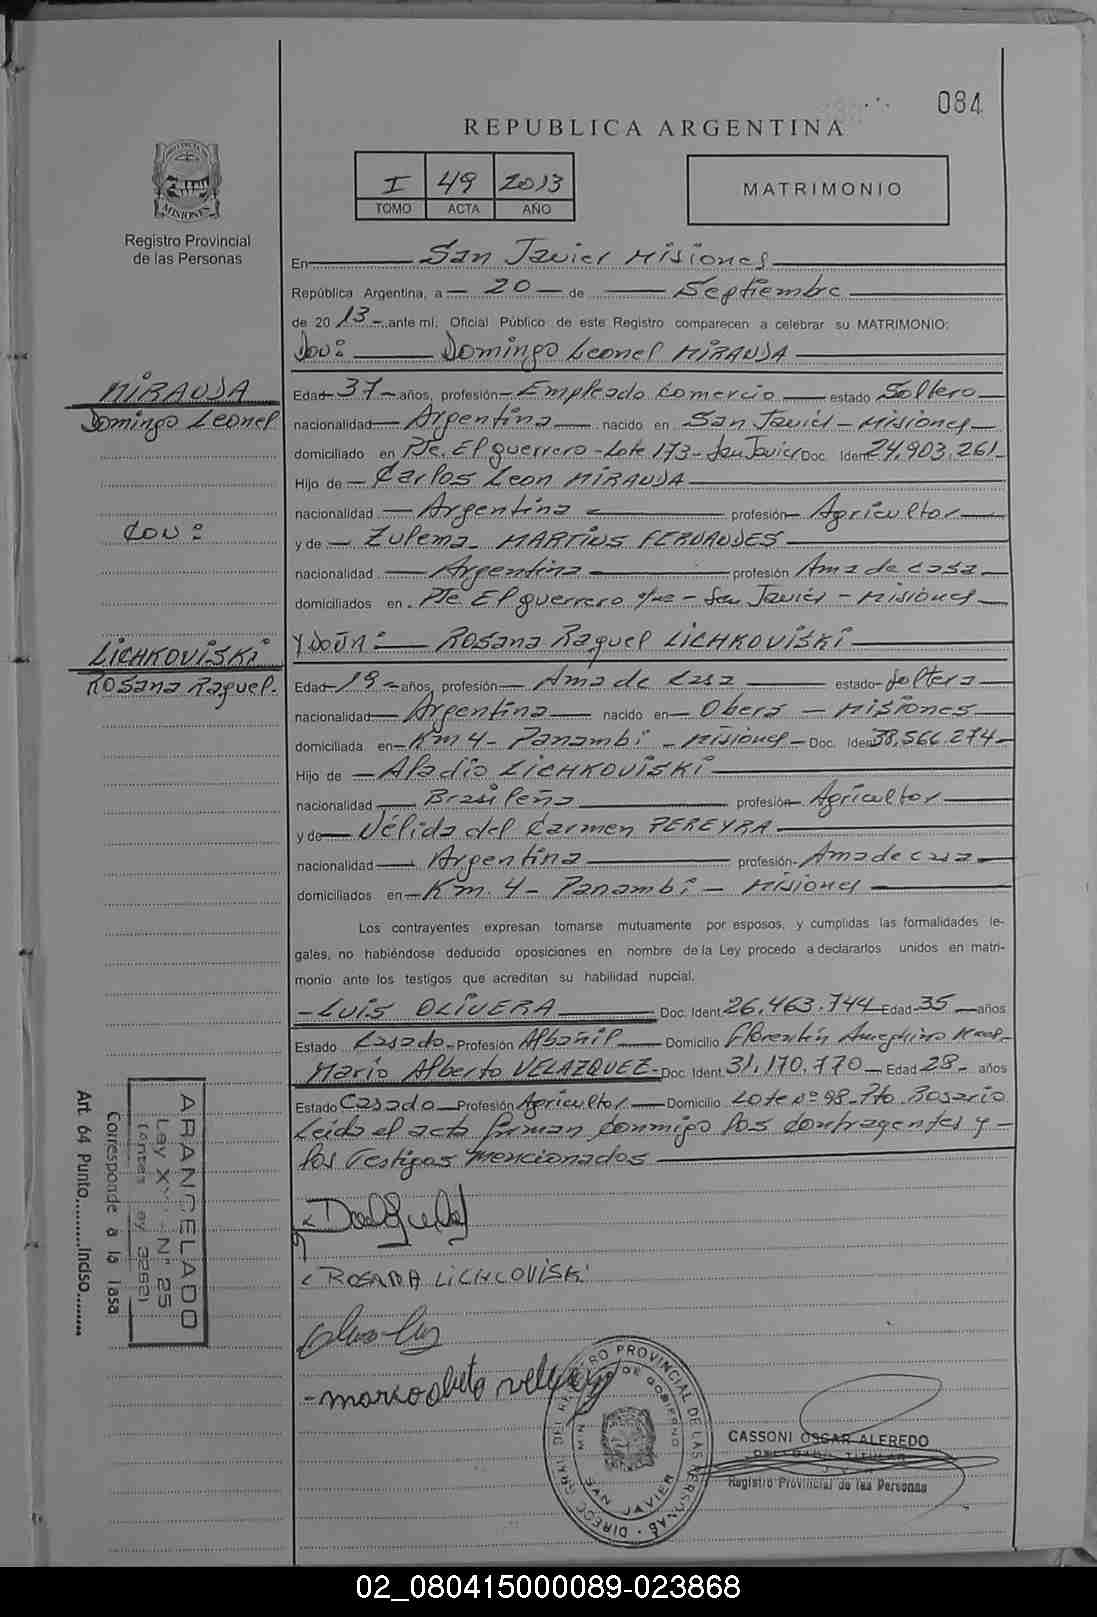 084
REPUBLICA ARGENTINA
PROVINCIA
MISIONES
Registro Provincial
de las Personas
I 49 2013
TOMO ACTA AÑO
MATRIMONIO
En San Javier Misiones
República Argentina, a 20 de Septiembre
de 2013 ante mí, Oficial Público de este Registro comparecen a celebrar su MATRIMONIO:
DON: Domingo Leonel MIRANDA
MIRANDA
Domingo Leonel
CON:
LICHKOVISKI
Rosana Raquel.
Edad 37 años, profesión Empleado Comercio estado Soltero
nacionalidad Argentina nacido en San Javier - Misiones
domiciliado en Pje. El guerrero - Lote 173 - San Javier Doc. Ident 24.903.261
Hijo de Carlos Leon MIRANDA
nacionalidad Argentina profesión Agricultor
y de Zulema MARTINS FERNANDES
nacionalidad Argentina profesión Ama de casa
domiciliados en Pje El guerrero - San Javier - Misiones
Y DOÑA: Rosana Raquel LICHKOVISKI
Edad 19 años, profesión Ama de Casa estado Soltera
nacionalidad Argentina nacido en Oberá - Misiones
domiciliada en Km 4 - Panambí - Misiones Doc. Ident 38.566.274
Hijo de Aladio LICHKOVISKI
nacionalidad Brasileña profesión Agricultor
y de Nélida del Carmen PEREYRA
nacionalidad Argentina profesión Ama de casa
domiciliados en Km. 4 - Panambí - Misiones
Los contrayentes expresan tomarse mutuamente por esposos, y cumplidas las formalidades le-
gales, no habiéndose deducido oposiciones en nombre de la Ley procedo a declararlos unidos en matri-
monio ante los testigos que acreditan su habilidad nupcial.
- LUIS OLIVERA Doc. Ident 26.463.744 Edad 35 años
Estado Casado Profesión Albañil Domicilio Florentín Ameghino
Mario Alberto VELAZQUEZ Doc. Ident. 31.170.770 Edad 28 años
Estado Casado Profesión Agricultor Domicilio Lote Nº 98 - Pto. Rosario
Leída el acta firman conmigo los contragentes y
los Testigos mencionados
ROSANA LICHCOVISKI
ARANCELADO
Ley XV - Nº 25
(Antes Ley 3252)
Corresponde a la Tasa
Art. 64 Punto.........Inciso........
DEL REGISTRO PROVINCIAL DE LAS PERSONAS
MIN DE GOBIERNO
SAN JAVIER
CASSONI OSCAR ALFREDO
DELEGADO TITULAR
Registro Provincial de las Personas
02_080415000089-023868